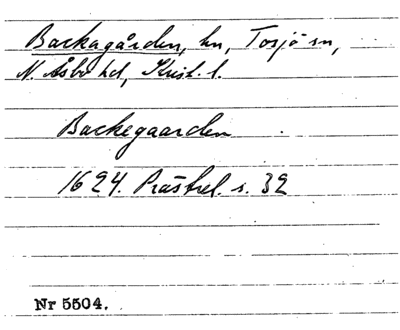 Backagården, hn, Tosjö sn,
N. Åsbo hd, Krist. l.
Backegaarden
1624. Prästrel. s. 32
Nr 5504.